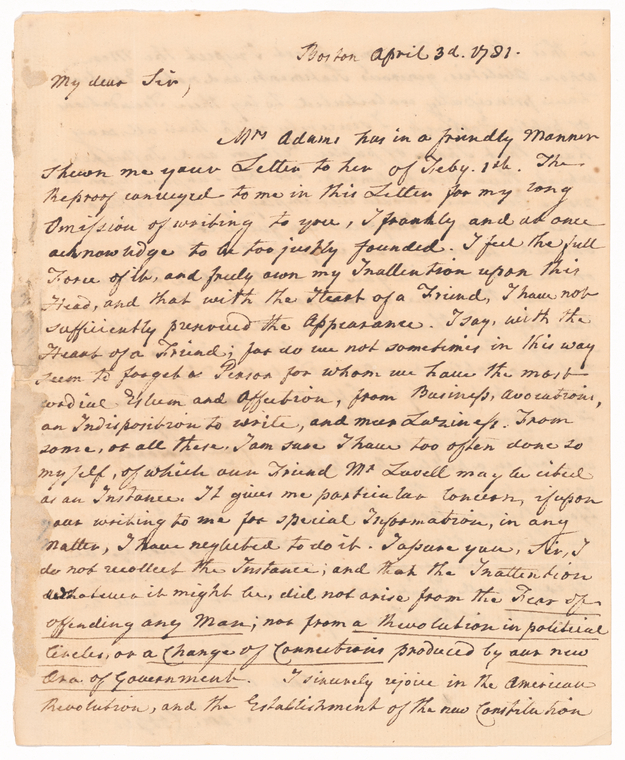 Boston April 3d. 1781.
My dear Sir,
Mrs Adams has in a friendly Manner
shewn me your Letter to her of Feby. 1st. The
Reproof conveyed to me in this Letter for my long
Omission of writing to you, I frankly and at once
acknowledge to be too justly founded. I feel the full
Force of it, and freely own my Inattention upon this
Head, and that with the Heart of a Friend, I have not
sufficiently preserved the Appearance. I say, with the
Heart of a Friend; for do we not sometimes in this way
seem to forget a Person for whom we have the most
cordial Esteem and Affection, from Business, avocations,
an Indisposition to write, and meer Laziness. From
some, or all these, I am sure I have too often done so
myself, of which our Friend Mr Lovell may be cited
as an Instance. It gives me particular Concern, if upon
your writing to me for special Information, in any
matter, I have neglected to do it. I assure you, Sir, I
do not recollect the Instance; and that the Inattention
whatever it might be, did not arise from the Fear of
offending any Man; nor from a Revolution in political
Circles, or a Change of Connections produced by our new
Era of Government. I sincerely rejoice in the American
Revolution, and the Establishment of the new Constitution